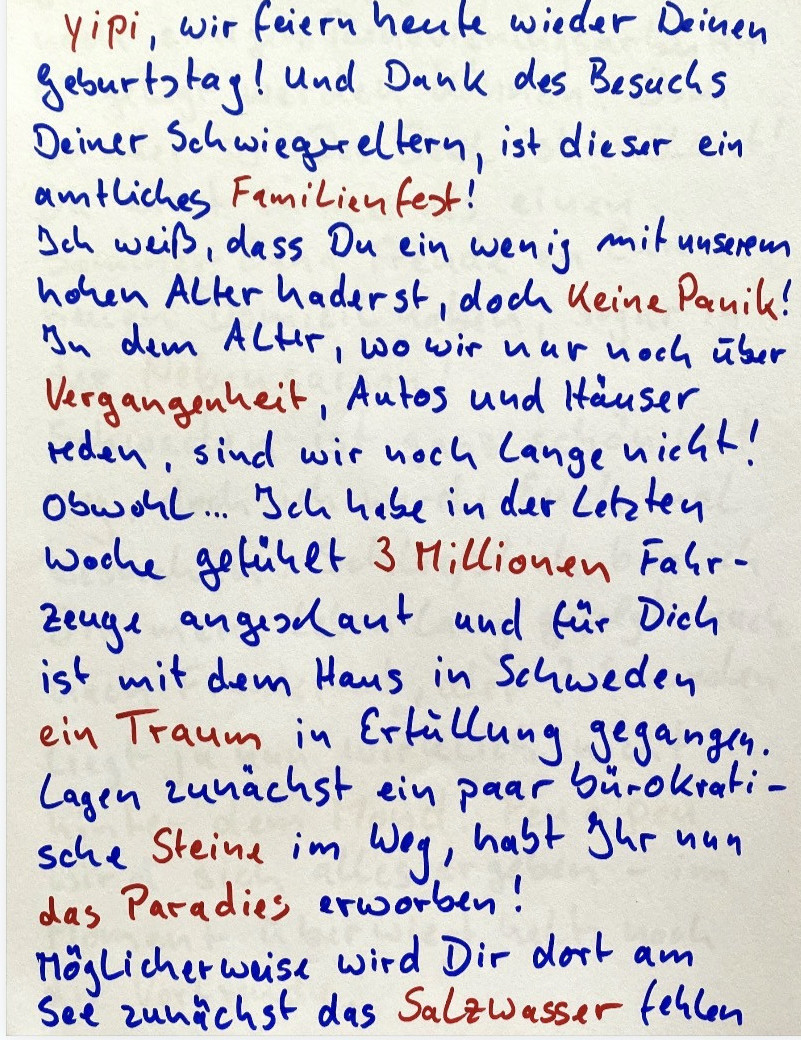 Yipi, wir feiern heute wieder Deinen
Geburtstag! Und Dank des Besuchs
Deiner Schwiegereltern, ist dieser ein
amtliches Familienfest!
Ich weiß, dass Du ein wenig mit unserem
hohen Alter haderst, doch Keine Panik!
In dem Alter, wo wir nur noch über
Vergangenheit, Autos und Häuser
reden, sind wir noch lange nicht!
Obwohl... Ich habe in der letzten
Woche gefühlt 3 Millionen Fahr-
zeuge angeschaut und für Dich
ist mit dem Haus in Schweden
ein Traum in Erfüllung gegangen.
Lagen zunächst ein paar bürokrati-
sche Steine im Weg, habt Ihr nun
das Paradies erworben!
Möglicherweise wird Dir dort am
See zunächst das Salzwasser fehlen